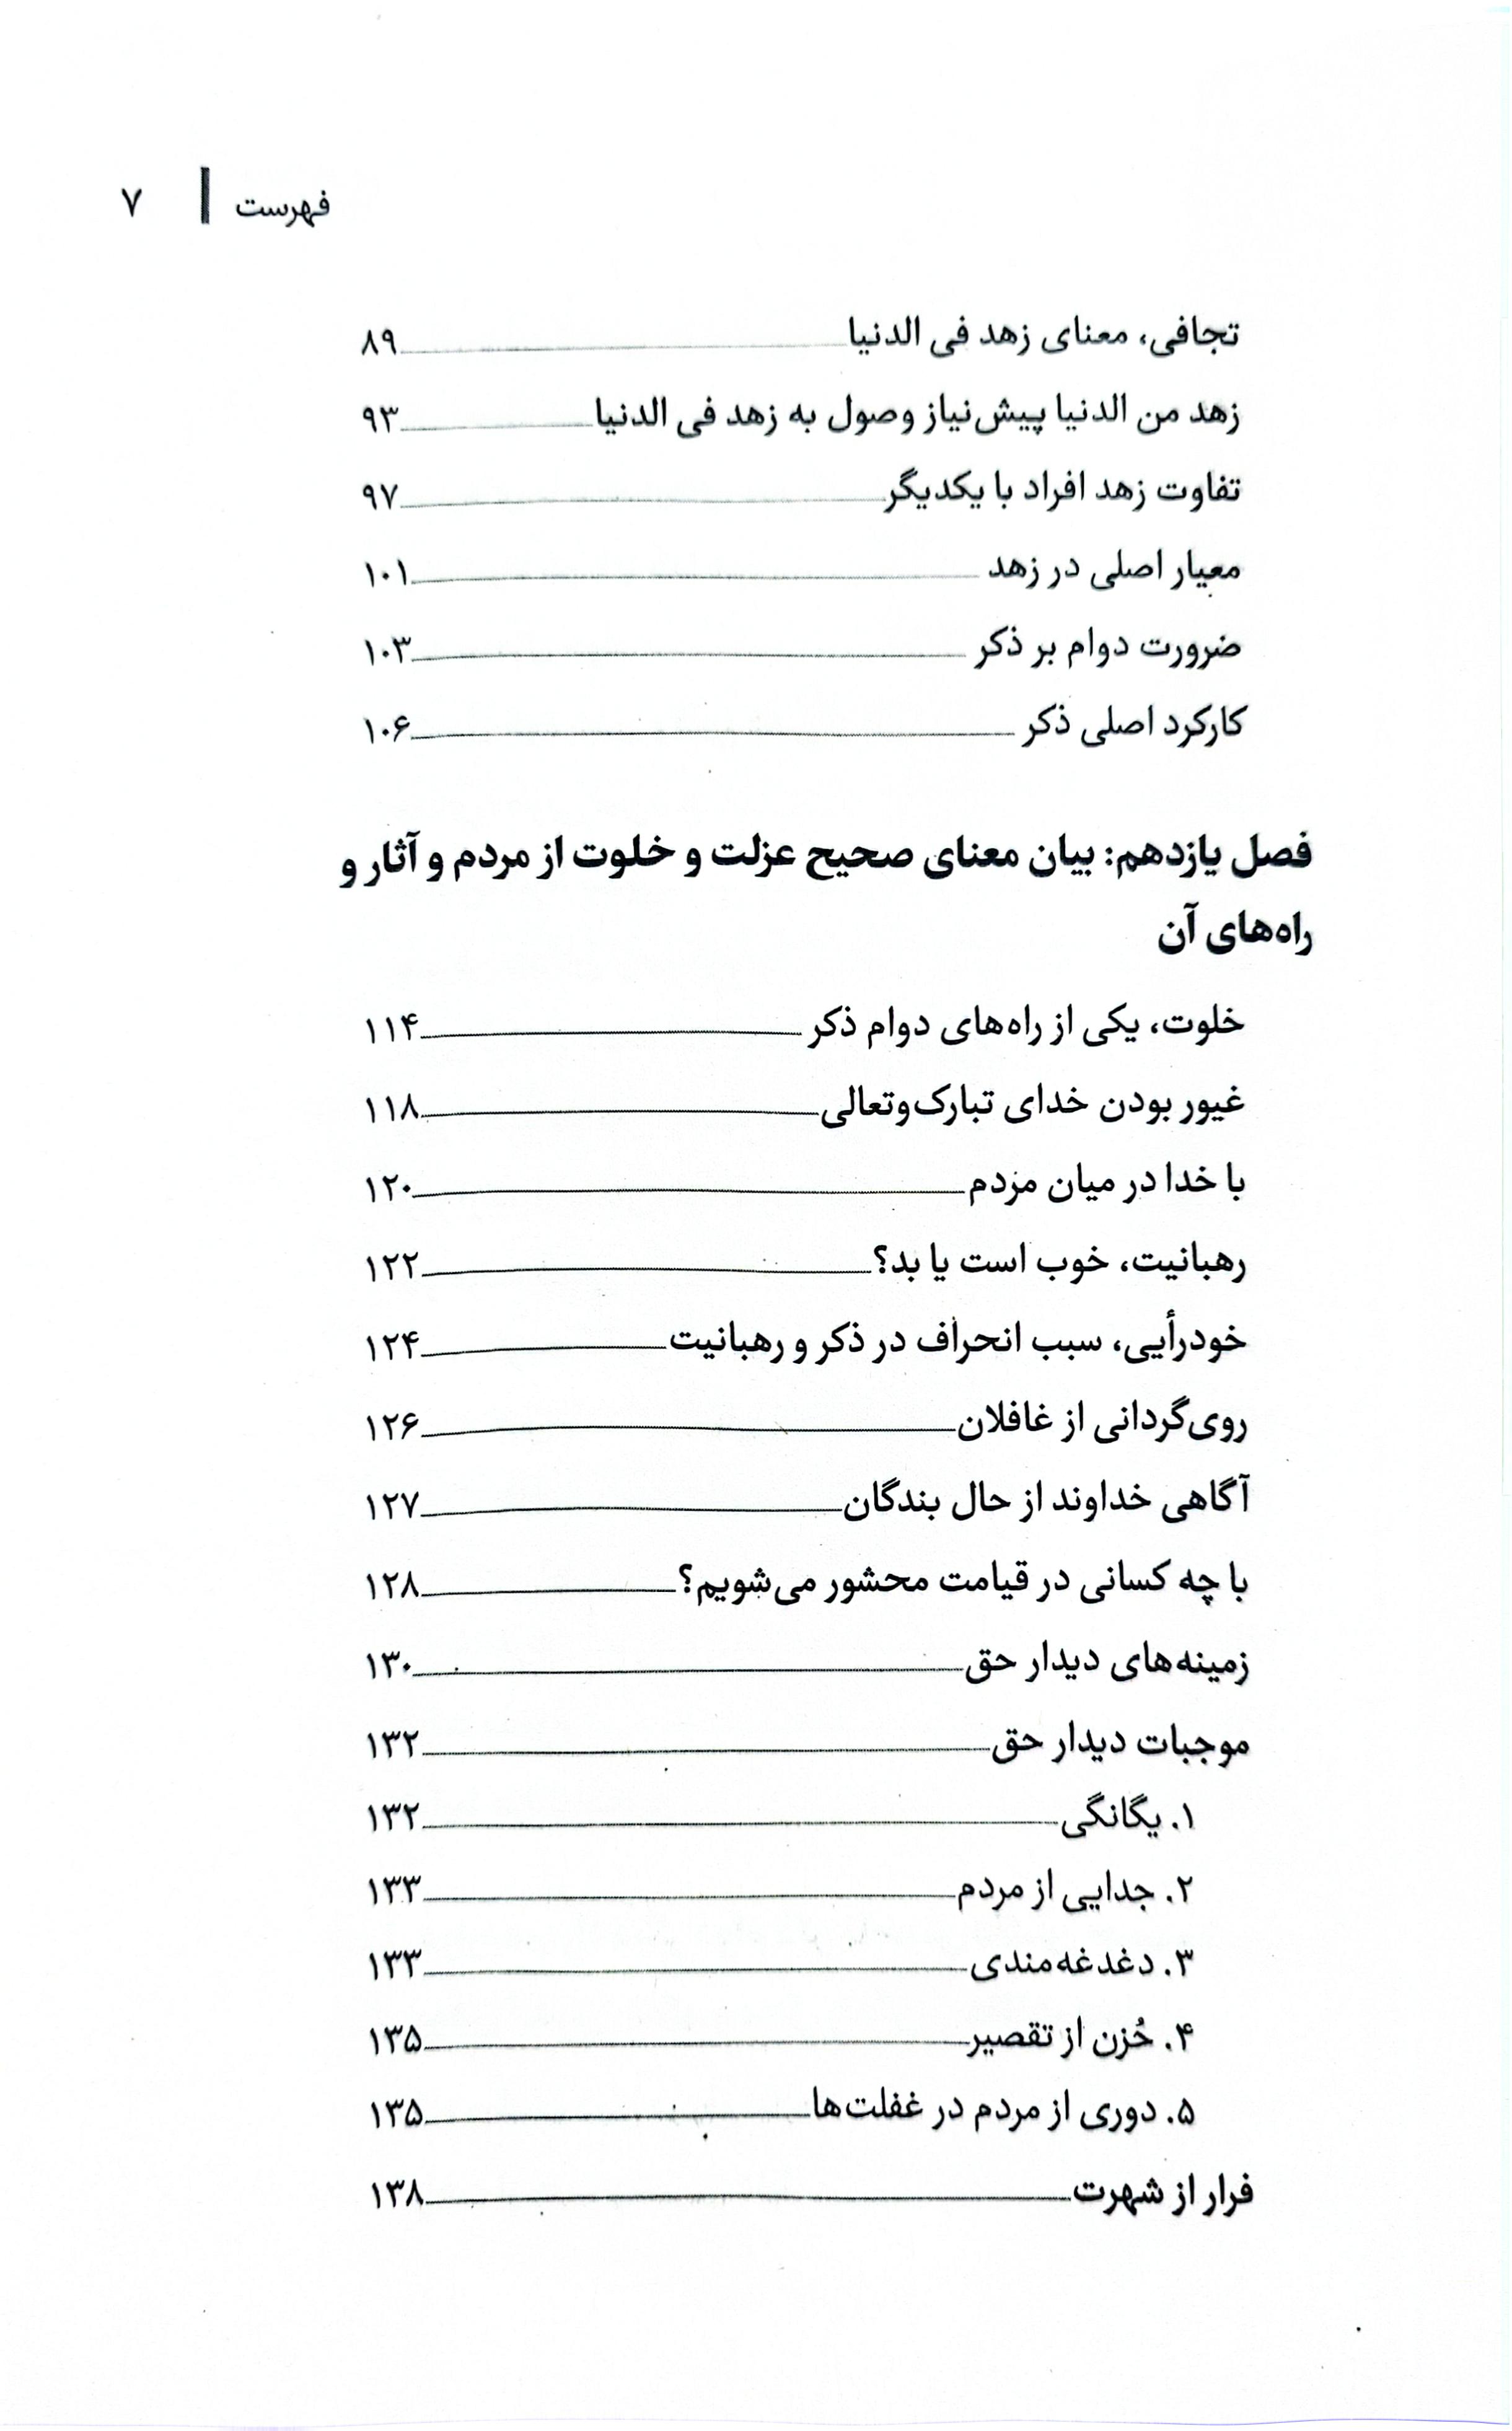 فهرست | ۷
تجافی، معنای زهد فی الدنیا ۸۹
زهد من الدنیا پیش‌نیاز وصول به زهد فی الدنیا ۹۳
تفاوت زهد افراد با یکدیگر ۹۷
معیار اصلی در زهد ۱۰۱
ضرورت دوام بر ذکر ۱۰۳
کارکرد اصلی ذکر ۱۰۶
فصل یازدهم: بیان معنای صحیح عزلت و خلوت از مردم و آثار و
راه‌های آن
خلوت، یکی از راه‌های دوام ذکر ۱۱۴
غیور بودن خدای تبارک‌وتعالی ۱۱۸
با خدا در میان مردم ۱۲۰
رهبانیت، خوب است یا بد؟ ۱۲۲
خودرأیی، سبب انحراف در ذکر و رهبانیت ۱۲۴
روی‌گردانی از غافلان ۱۲۶
آگاهی خداوند از حال بندگان ۱۲۷
با چه کسانی در قیامت محشور می‌شویم؟ ۱۲۸
زمینه‌های دیدار حق ۱۳۰
موجبات دیدار حق ۱۳۲
۱. یگانگی ۱۳۲
۲. جدایی از مردم ۱۳۳
۳. دغدغه‌مندی ۱۳۳
۴. حُزن از تقصیر ۱۳۵
۵. دوری از مردم در غفلت‌ها ۱۳۵
فرار از شهرت ۱۳۸